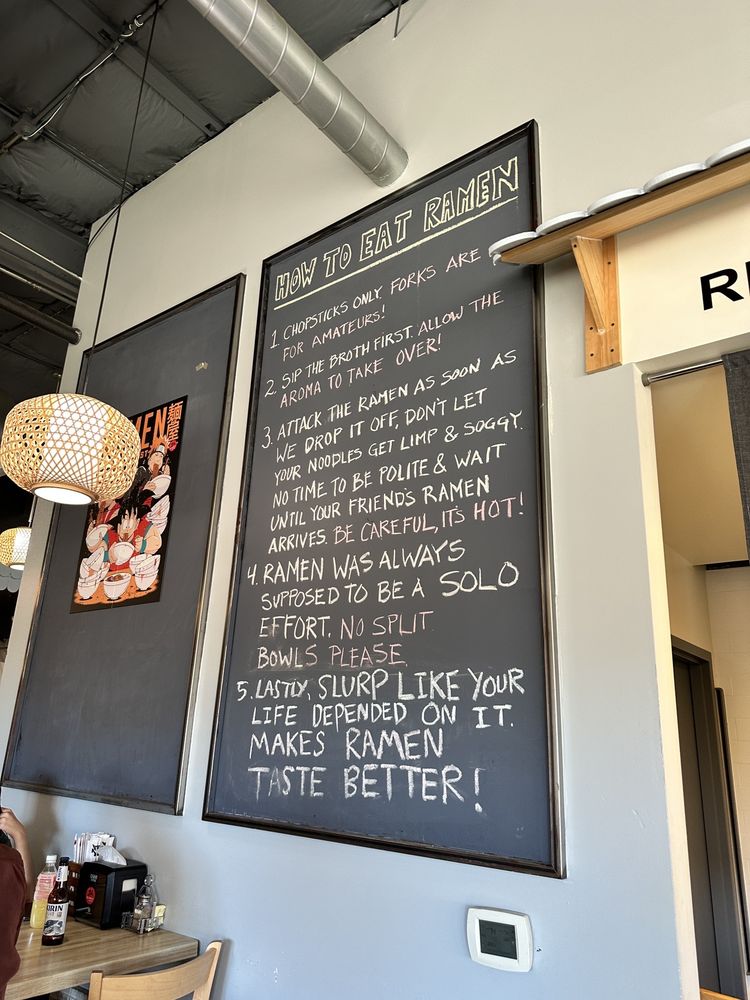 HOW TO EAT RAMEN
1. CHOPSTICKS ONLY. FORKS ARE
FOR AMATEURS!
2. SIP THE BROTH FIRST. ALLOW THE
AROMA TO TAKE OVER!
3. ATTACK THE RAMEN AS SOON AS
WE DROP IT OFF, DON'T LET
YOUR NOODLES GET LIMP & SOGGY.
NO TIME TO BE POLITE & WAIT
UNTIL YOUR FRIEND'S RAMEN
ARRIVES. BE CAREFUL, IT'S HOT!
4. RAMEN WAS ALWAYS
SUPPOSED TO BE A SOLO
EFFORT. NO SPLIT
BOWLS PLEASE.
5. LASTLY, SLURP LIKE YOUR
LIFE DEPENDED ON IT.
MAKES RAMEN
TASTE BETTER!
麺屋